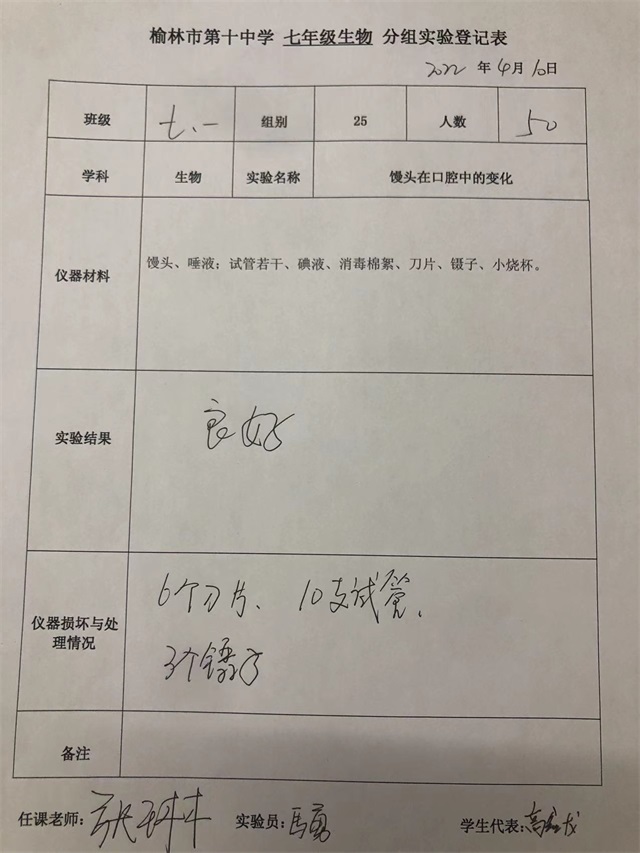 榆林市第十中学 七年级生物 分组实验登记表
2022 年 4 月 10 日
班级 七.一 组别 25 人数 50
学科 生物 实验名称 馒头在口腔中的变化
仪器材料 馒头、唾液；试管若干、碘液、消毒棉絮、刀片、镊子、小烧杯。
实验结果 良好
仪器损坏与处
理情况
6个刀片、 10支试管、
3个镊子
备注
任课老师： 实验员：马勇 学生代表：